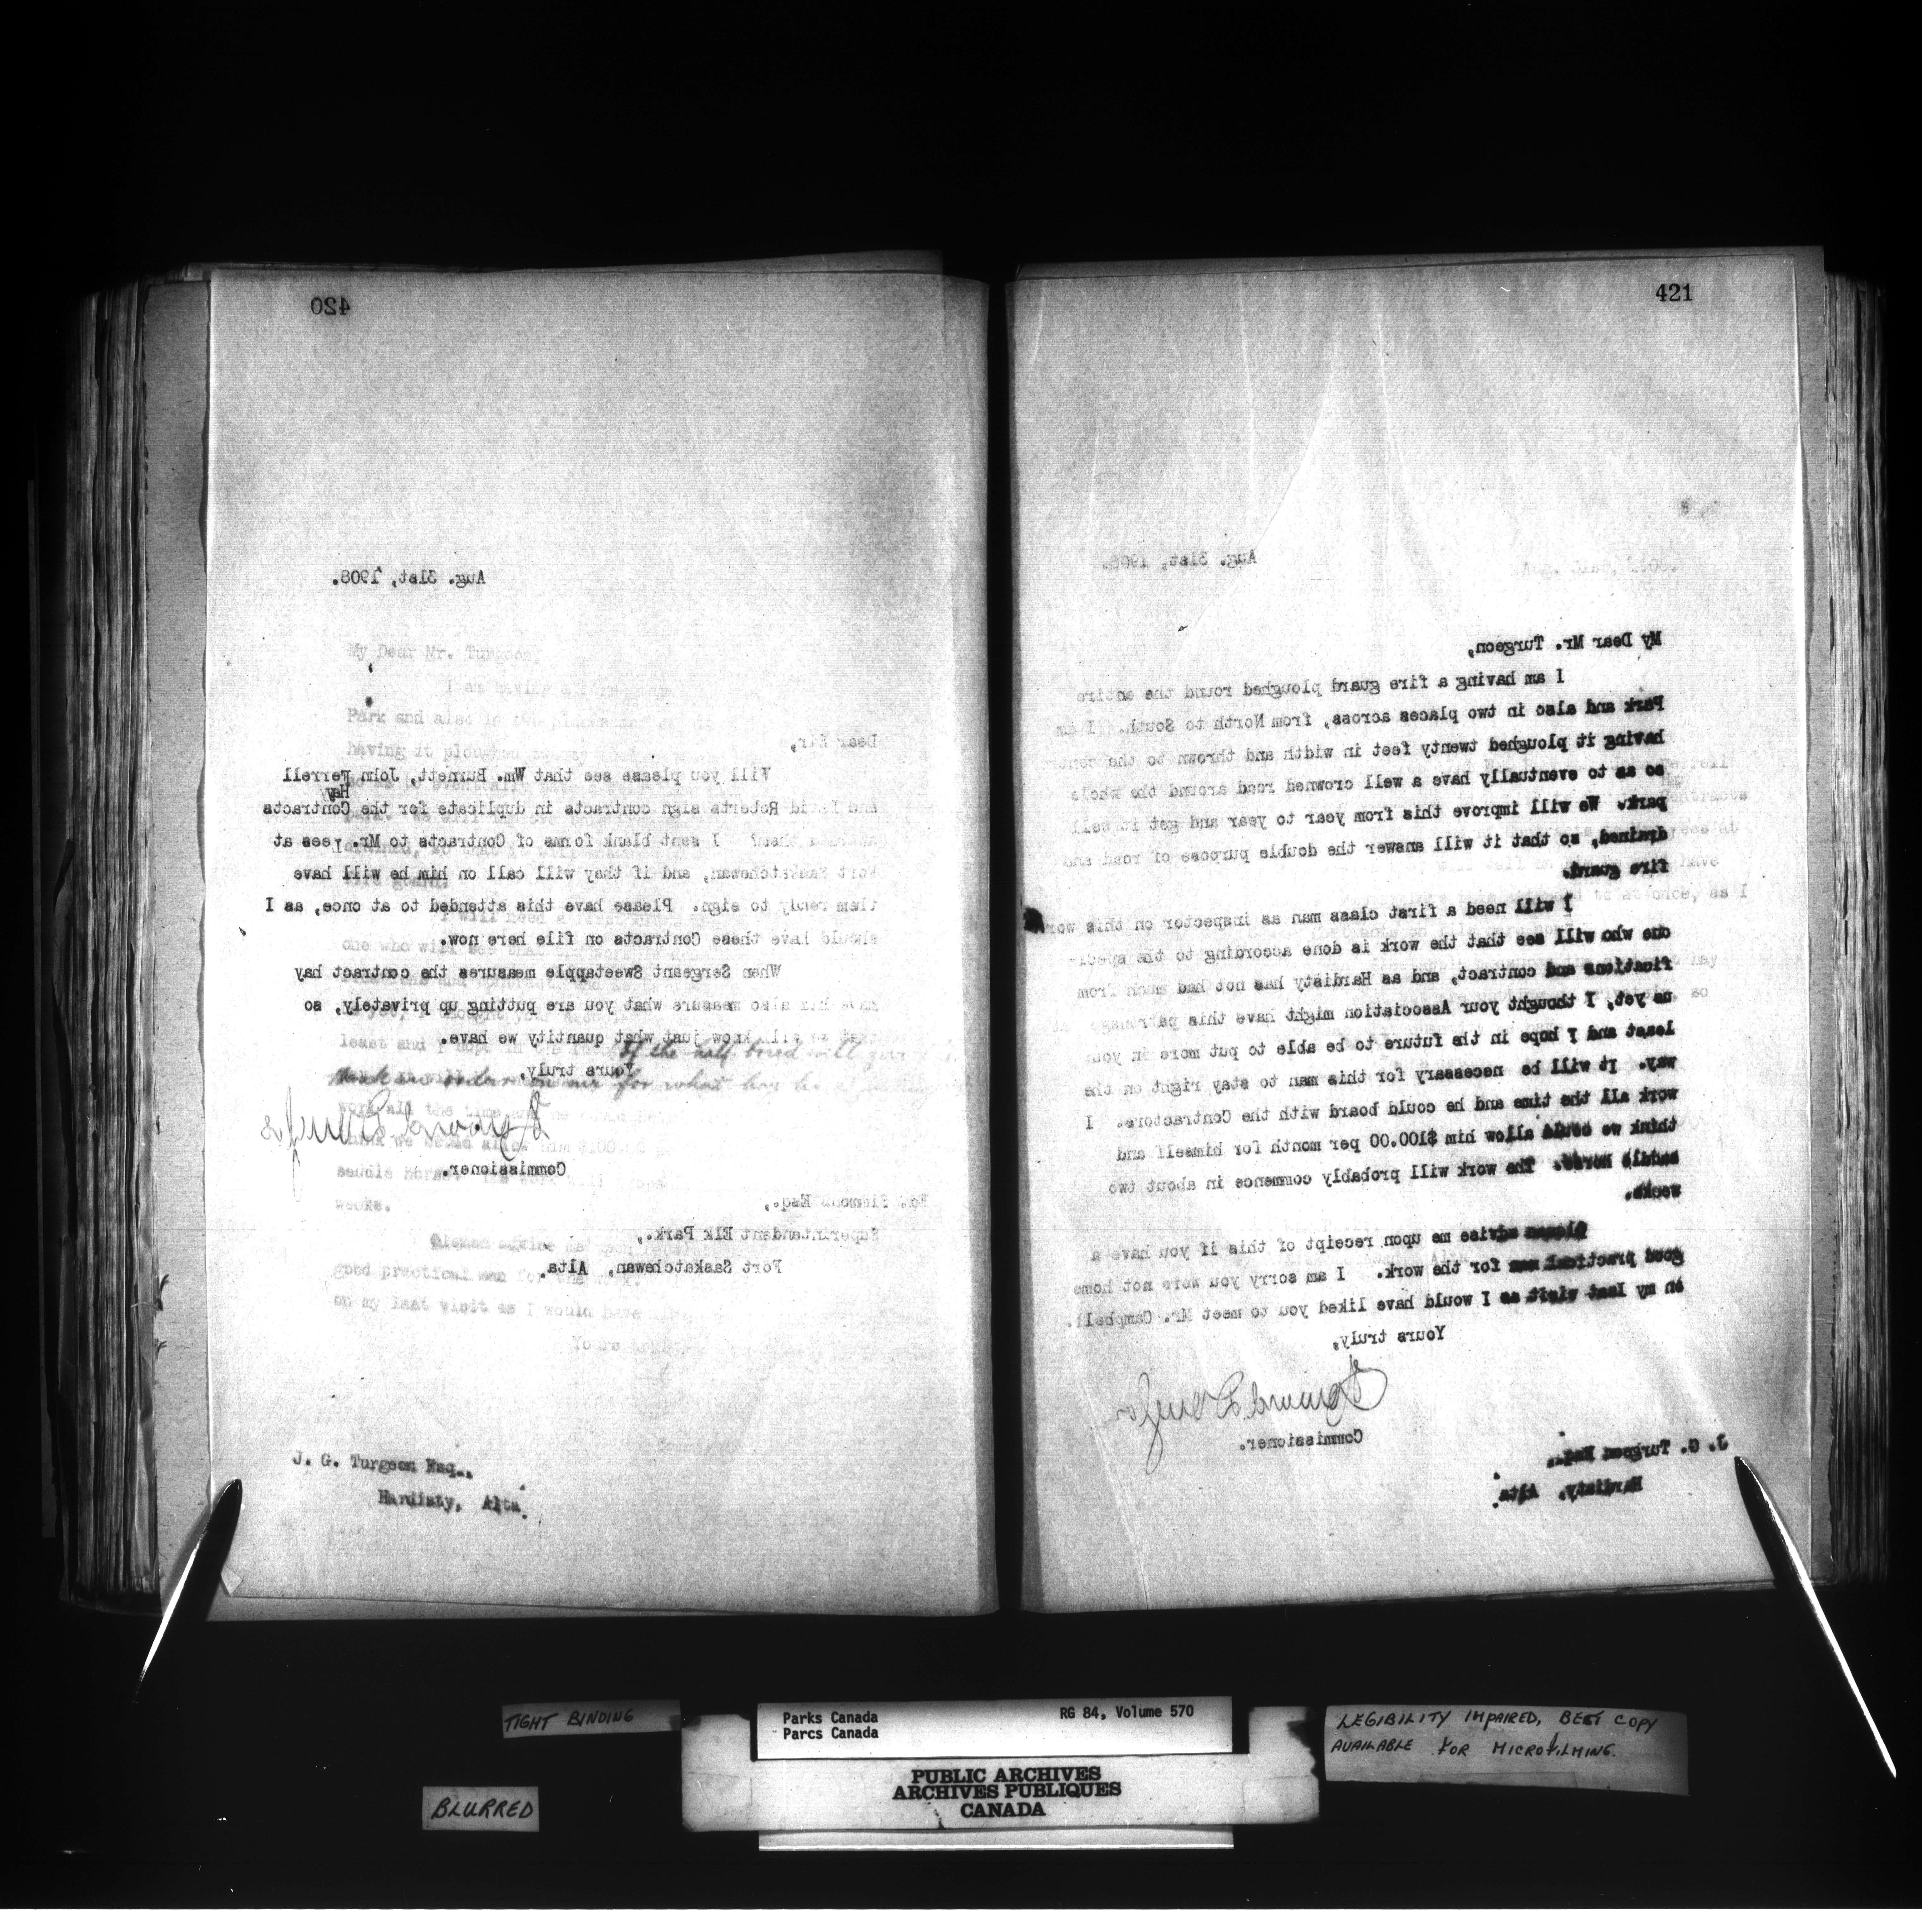 420
Aug. 31st, 1908.
Dear Sir,
Will you please see that Wm. Burnett, John Ferrell
Hay
and David Roberts sign contracts in duplicate for the Contracts
them? I sent blank forms of Contracts to Mr. Lees at
Fort Saskatchewan, and if they will call on him he will have
them ready to sign. Please have this attended to at once, as I
should have these Contracts on file here now.
When Sergeant Sweetapple measures the contract hay
have him also measure what you are putting up privately, so
that we will know just what quantity we have.
Yours truly,
for what hay he
Commissioner.
Ed. Simmons Esq.,
Superintendent Elk Park.,
Fort Saskatchewan, Alta.
J. G. Turgeon Esq.,
Hardisty, Alta.
421
Aug. 31st, 1908.
My Dear Mr. Turgeon,
I am having a fire guard ploughed round the entire
Park and also in two places across, from North to South. I am
having it ploughed twenty feet in width and thrown to the
so as to eventually have a well crowned road around the whole
park. We will improve this from year to year and get it well
drained, so that it will answer the double purpose of road and
fire guard.
I will need a first class man as inspector on this work
one who will see that the work is done according to the speci-
fications and contract, and as Hardisty has not had much from
us yet, I thought your Association might have this patronage
least and I hope in the future to be able to put more in your
way. It will be necessary for this man to stay right on the
work all the time and he could board with the Contractors. I
think we could allow him $100.00 per month for himself and
saddle horse. The work will probably commence in about two
weeks.
Please advise me upon receipt of this if you have a
good practical man for the work. I am sorry you were not home
on my last visit as I would have liked you to meet Mr. Campbell.
Yours truly,
Commissioner.
J. G. Turgeon Esq.,
Hardisty, Alta.
TIGHT BINDING
BLURRED
Parks Canada
Parcs Canada
RG 84, Volume 570
PUBLIC ARCHIVES
ARCHIVES PUBLIQUES
CANADA
LEGIBILITY IMPAIRED, BEST COPY
AVAILABLE FOR MICROFILMING.